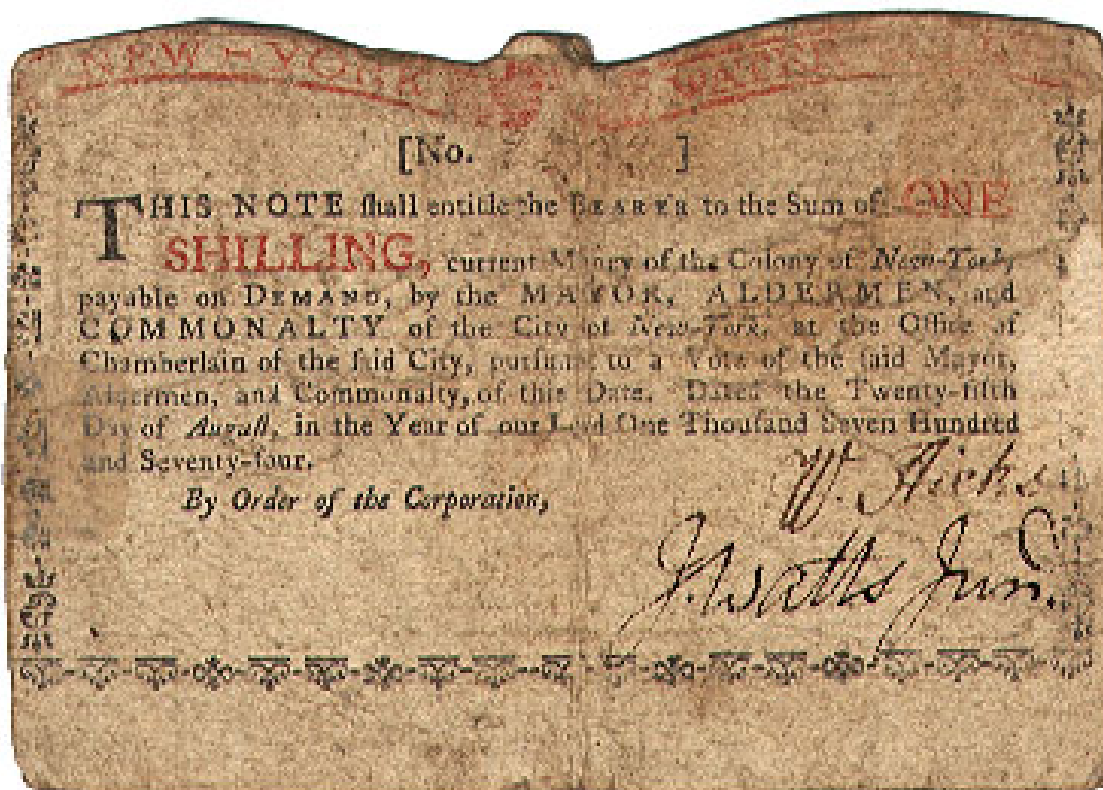 NEW-YORK WATER
[No. ]
THIS NOTE ſhall entitle the BEARER to the Sum of ONE
SHILLING, current Money of the Colony of New-York,
payable on DEMAND, by the MAYOR, ALDERMEN, and
COMMONALTY of the City of New-York, at the Office of
Chamberlain of the ſaid City, purſuant to a Vote of the ſaid Mayor,
Aldermen, and Commonalty, of this Date. Dated the Twenty-fifth
Day of Auguſt, in the Year of our Lord One Thouſand Seven Hundred
and Seventy-four.
By Order of the Corporation,
W. Hicks
J. Watts Junr.